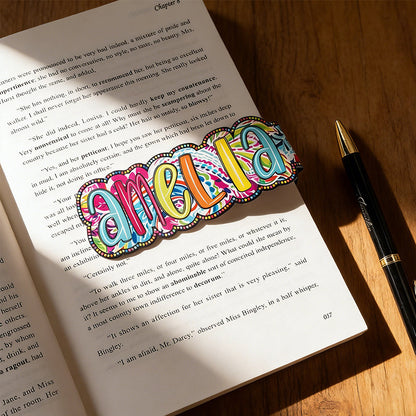 Chapter 8
were pronounced to be very bad indeed, a mixture of pride and
impertinence, she had no conversation, no style, no taste, no beauty. Mrs.
thought the same, and added,
"She has nothing, in short, to recommend her, but being an excellent
walker. I shall never forget her appearance this morning. She really looked
almost wild."
"She did indeed, Louisa. I could hardly keep my countenance.
Very nonsensical to come at all! Why must she be scampering about the
country because her sister had a cold? Her hair so untidy, so blowsy!"
"Yes, and her petticoat; I hope you saw her petticoat, six inches deep
in mud, I am absolutely certain; and the gown which had been let down to
hide it, not doing its office."
"Your
was all
well when
escaped
AMELIA
"You
am
an exhibition
"Certainly not."
"To walk three miles, or four miles, or five miles, or whatever it is,
above her ankles in dirt, and alone, quite alone! What could she mean by
it? It seems to me to show an abominable sort of conceited independence,
a most country town indifference to decorum."
"It shows an affection for her sister that is very pleasing," said
Bingley.
"I am afraid, Mr. Darcy," observed Miss Bingley, in a half whisper,
017
and his
others.
by whom
drink, and
a ragout, had
Jane, and Miss
of the room. Her